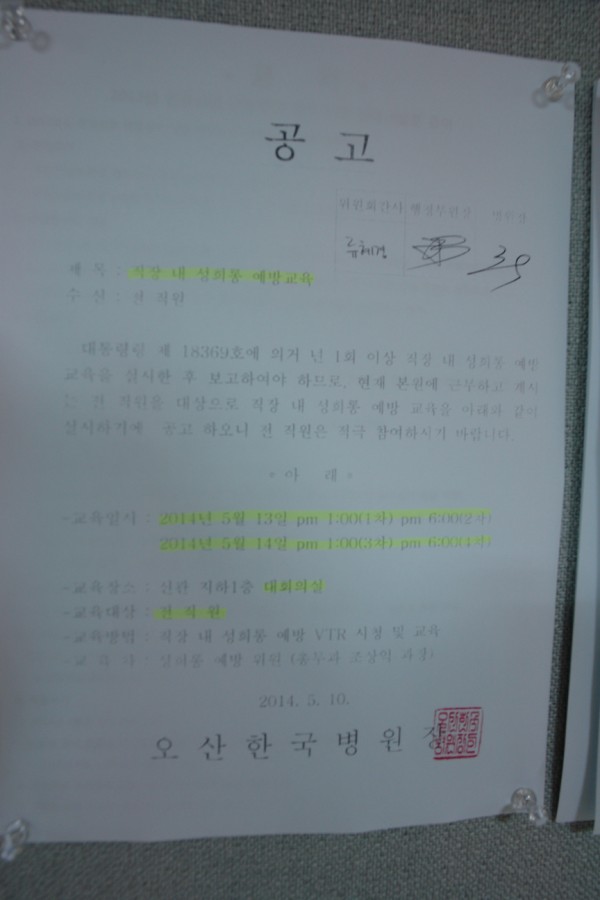 공 고
위원회간사 행정부원장 병원장
류혜경
제 목 : 직장 내 성희롱 예방교육
수 신 : 전 직원
대통령령 제 18369호에 의거 년 1회 이상 직장 내 성희롱 예방
교육을 실시한 후 보고하여야 하므로, 현재 본원에 근무하고 계시
는 전 직원을 대상으로 직장 내 성희롱 예방 교육을 아래와 같이
실시하기에 공고 하오니 전 직원은 적극 참여하시기 바랍니다.
아 래
-교육일시 : 2014년 5월 13일 pm 1:00(1차) pm 6:00(2차)
2014년 5월 14일 pm 1:00(3차) pm 6:00(4차)
-교육장소 : 신관 지하1층 대회의실
-교육대상 : 전 직 원
-교육방법 : 직장 내 성희롱 예방 VTR 시청 및 교육
교 육 자 : 성희롱 예방 위원
2014. 5. 10.
오 산 한 국 병 원 장